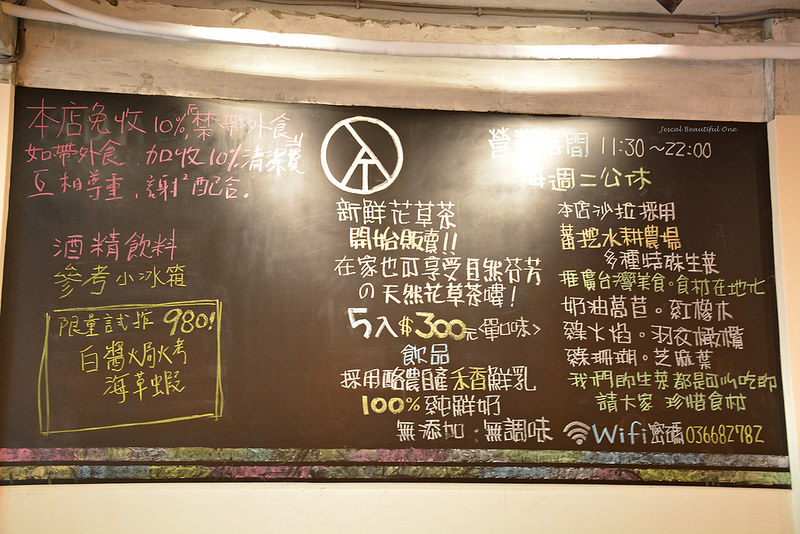 本店免收10%,『禁帶外食』
如帶外食 加收10%清潔費
互相尊重,謝²配合.
酒精飲料
參考小冰箱
限量試推980!
白醬焗烤
海草蝦
新鮮花草茶
開始販賣!!
在家也可享受自然芬芳
の天然花草茶嘍!
5入$300元<單口味>
飲品
採用酪農自產禾香鮮乳
100%純鮮奶
無添加.無調味
Jescal Beautiful One
營業時間 11:30~22:00
每週二公休
本店沙拉採用
蕃挖水耕農場
多種特殊生菜
推廣台灣美食。食材在地化
奶油萵苣。紅橡木
綠火焰。羽衣橄欖
綠珊瑚。芝麻葉
我們的生菜都是可以吃的
請大家 珍惜食材
Wifi密碼036682782